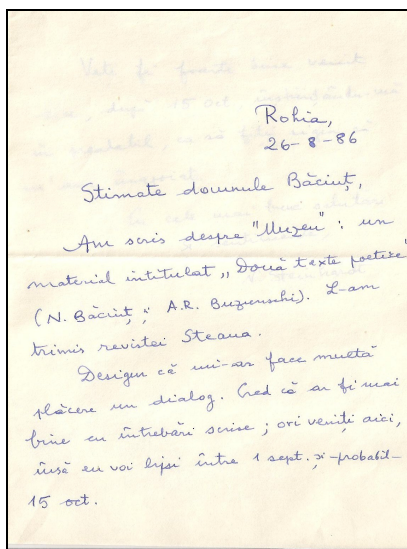 Rohia,
26-8-86
Stimate domnule Băciuț,
Am scris despre "Muzeu": un
material intitulat „Două texte poetice"
(N. Băciuț și A.R. Buzienschi). L-am
trimis revistei Steaua.
Desigur că mi-ar face multă
plăcere un dialog. Cred că ar fi mai
bine cu întrebări scrise; ori veniți aici,
însă eu voi lipsi între 1 sept. și -probabil-
15 oct.